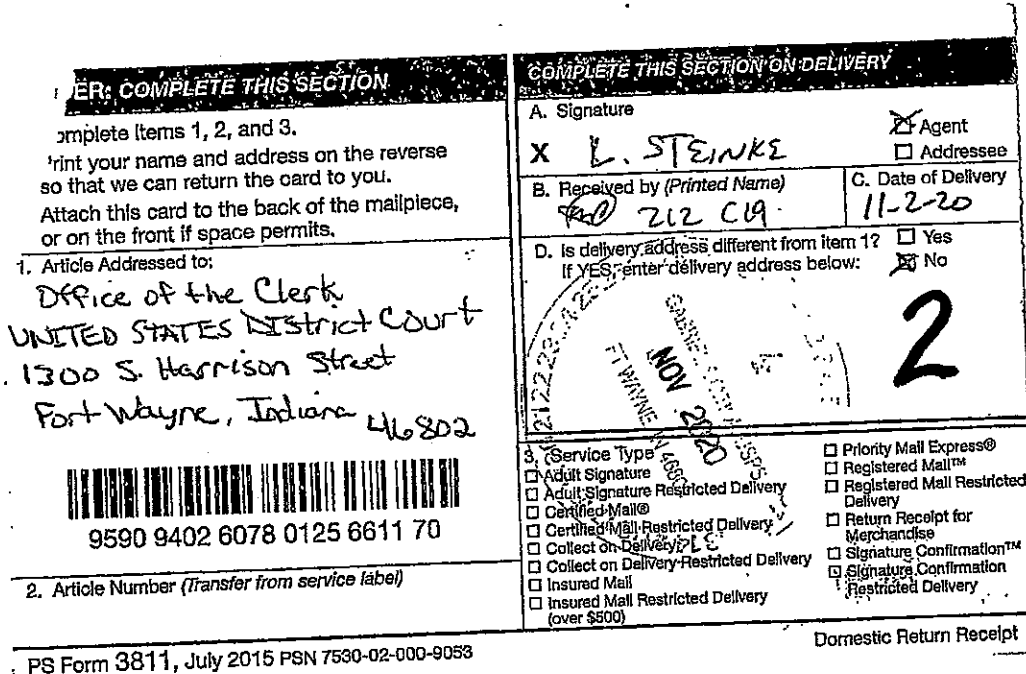 ER: COMPLETE THIS SECTION
omplete items 1, 2, and 3.
rint your name and address on the reverse
so that we can return the card to you.
Attach this card to the back of the mailpiece,
or on the front if space permits.
1. Article Addressed to:
Office of the Clerk
UNITED STATES District Court
1300 S. Harrison Street
Fort Wayne, Indiana 46802
9590 9402 6078 0125 6611 70
2. Article Number (Transfer from service label)
PS Form 3811, July 2015 PSN 7530-02-000-9053
COMPLETE THIS SECTION ON DELIVERY
A. Signature
X L. STEINKE
Agent
Addressee
B. Received by (Printed Name)
212 C19
C. Date of Delivery
11-2-20
D. Is delivery address different from item 1? Yes
If YES, enter delivery address below: No
2
NOV 2020
FT WAYNE IN
USPS
3. Service Type
Adult Signature
Adult Signature Restricted Delivery
Certified Mail®
Certified Mail Restricted Delivery
Collect on Delivery
Collect on Delivery Restricted Delivery
Insured Mail
Insured Mail Restricted Delivery
(over $500)
Priority Mail Express®
Registered Mail™
Registered Mail Restricted
Delivery
Return Receipt for
Merchandise
Signature Confirmation™
Signature Confirmation
Restricted Delivery
Domestic Return Receipt